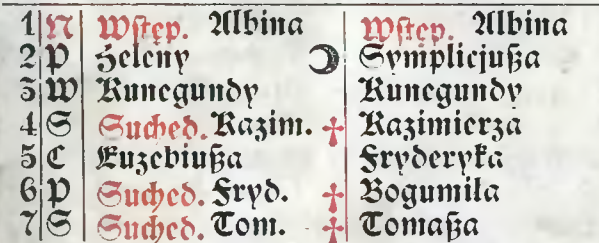 1 N Wſtęp. Albina Wſtęp. Albina
2 P Heleny ☽ Symplicjußa
3 W Kunegundy Kunegundy
4 S Suched. Kazim. ✝ Kazimierza
5 C Euzebiußa Fryderyka
6 P Suched. Fryd. ✝ Bogumiła
7 S Suched. Tom. ✝ Tomaßa